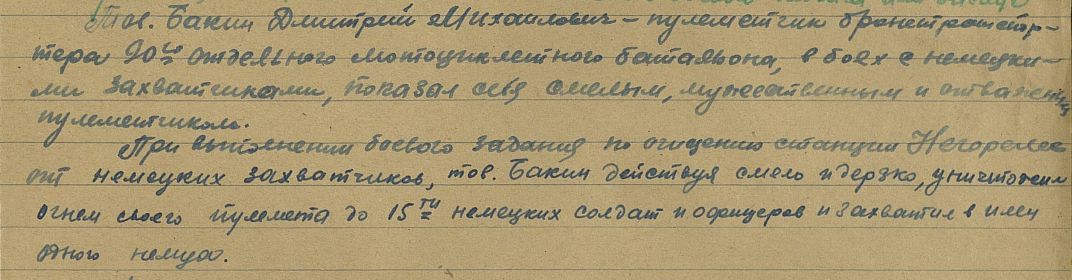 Тов. Бакин Дмитрий Михаилович – пулеметчик бронетранспор-
тера 90го отдельного мотоциклетного батальона, в боях с немецки-
ми захватчиками, показал себя смелым, мужественным и отважным
пулеметчиком.
При выполнении боевого задания по очищению станции Негорелое
от немецких захватчиков, тов. Бакин действуя смело и дерзко, уничтожил
огнем своего пулемета до 15ти немецких солдат и офицеров и захватил в плен
одного немца.